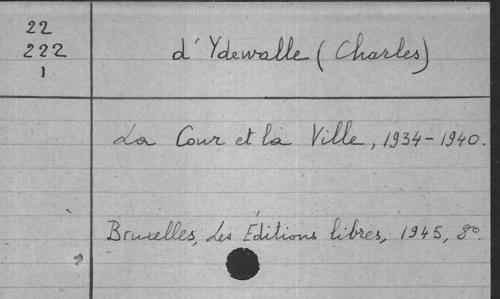 22
222
1
d'Ydewalle (Charles)
La Cour et la Ville, 1934-1940.
Bruxelles, Les Éditions libres, 1945, 8°.